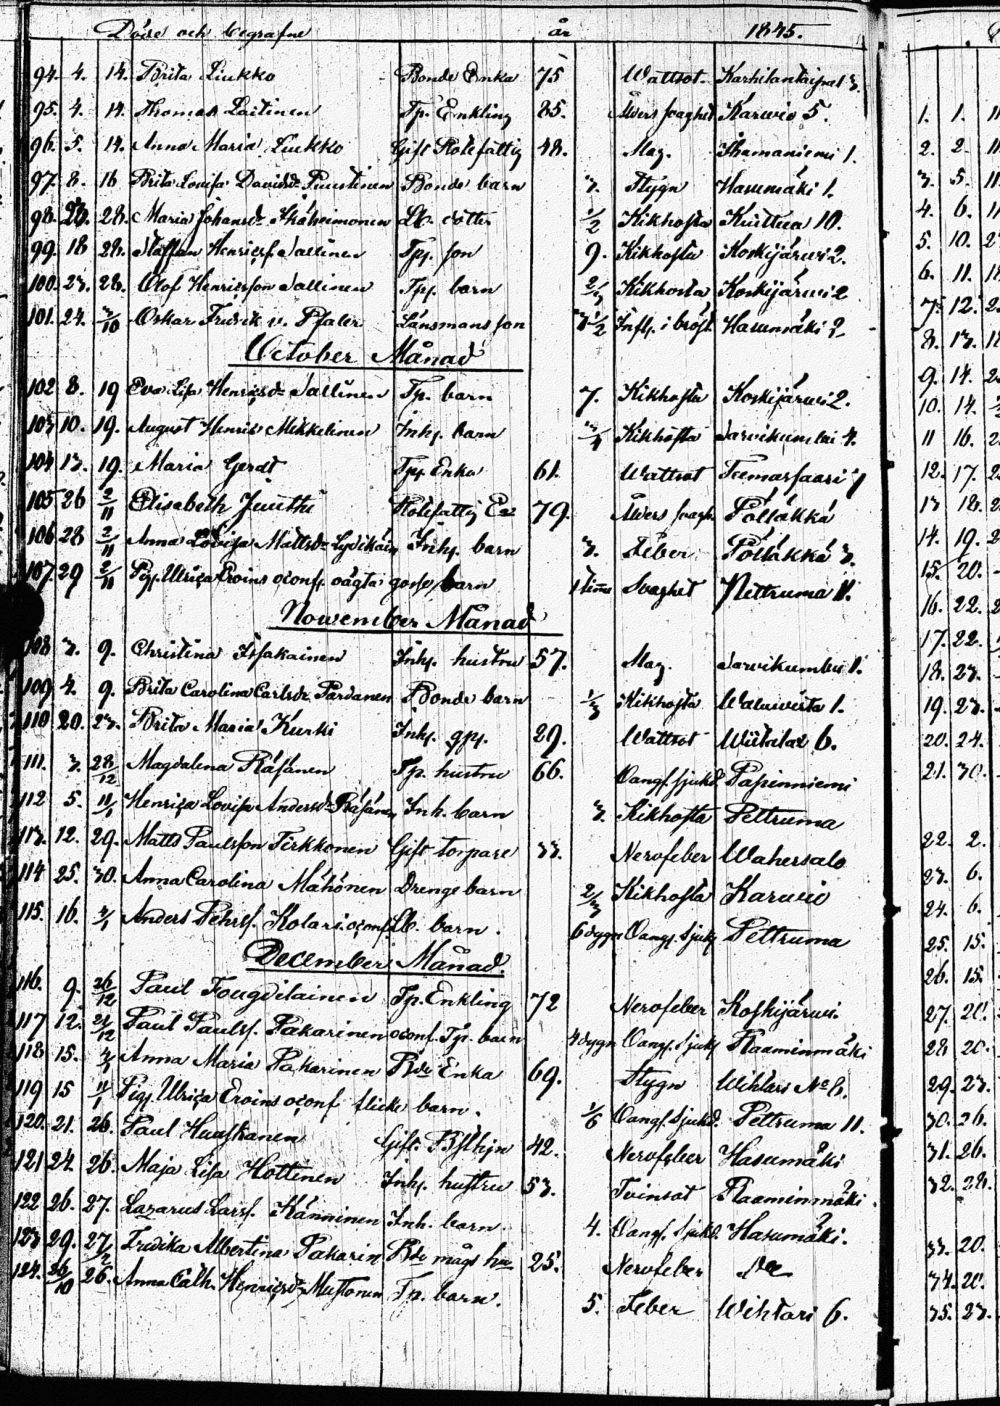 Döde och begrafne år 1845.
94. 4. 14. Brita Liukko Bonde Enka 75 Wattsot. Karhilantaipal 3.
95. 4. 14. Thomas Laitinen Tp. Enkling 85. Ålders svaghet Karwio 5.
96. 5. 14. Anna Maria Liukko Gift Rotefattig 48. Mag. Ihamaniemi 1.
97. 8. 16 Brita Lovisa Davidsdr Puustinen Bonde barn 3. Stygn Hasumäki 1.
98. 23. 28. Maria Johansdr Ikäheimonen Do. dotter 1/2 Kikhosta Kuittua 10.
99. 18 28. Staffan Henricsf. Sallinen Tpf. son 9. Kikhosta Koskijärwi 2.
100. 23. 28. Olof Henricsson Sallinen Tpf. barn 2/3 Kikhosta Koskijärwi 2
101. 24. 3/10 Oskar Fredrik v. Pfaler Länsmans son 3 1/2 Infl. i bröst. Hasumäki 2
October Månad
102 8. 19 Eva Lisa Henricsdr Sallinen Tp. barn 7. Kikhosta Koskijärwi 2.
103 10. 19. August Henric Mikkelinen Inh. barn 3/4 Kikhosta Sarvikumbu 4.
104 13. 19. Maria Gerdt Tpf Enka 61. Wattsot Tuimasaari 7
105 26 2/11 Elisabeth Juuthi Rotefattig Ea 79. Ålders svagh. Pölläkkä
106 28 2/11 Anna Lovisa Mattsdr Lydikäin Inhf. barn 3. Feber Pölläkkä 3.
107. 29 2/11 Sigf. Ulrica Eroins oconf oägta gosse barn 1 timme Svaghet Pettruma 11.
November Månad
108 3. 9. Christina Issakainen Inhf. hustru 57. Mag. Sarvikumbu 1.
109 4. 9. Brita Carolina Carlsdr Pardanen Bonde barn 1/3 Kikhosta Walwista 1.
110 20. 23. Brita Maria Kurki Inhf. gpf. 29. Wattsot Wiitalax 6.
111. 3. 28/12 Magdalena Räsänen Tp. hustru 66. Oangf. sjukd. Papinniemi
112 5. 11/1 Henrica Lovisa Andersdr Räsänen Inh. barn 3. Kikhosta Pettruma
113. 12. 29. Matts Paulsson Tirkkonen Gift torpare 33. Nervfeber Wahersalo
114 25. 30. Anna Carolina Mähönen Drenge barn 2/3 Kikhosta Karwio
115. 16. 3/1 Anders Pehrsf. Kolari oconf. Do. barn. 6 dygn Oangf. Sjukd. Pettruma
December Månad.
116. 9. 26/12 Paul Tougdilainen Tp. Enkling 72 Nervfeber Koskijärwi
117 12. 21/12 Paul Paulsf. Pakarinen oconf. Tp. barn 4 dygn Oangf. Sjukd Raaminmäki
118 15. 3/1 Anna Maria Pakarinen Bde Enka 69. Stygn Wihtari No 8.
119 15 11/1 Sigf. Ulrica Eroins oconf flicke barn. 1/6 Oangf. Sjukd. Pettruma 11.
120. 21. 26. Paul Huuskanen Gift. 42. Nervfeber Hasumäki
121 24. 26. Maja Lisa Hottinen Inhf. hustru 53. Tvinsot Raaminmäki.
122 26. 27. Lazarus Larsf. Känninen Inh. barn. 4. Oangf. Sjukd. Hasumäki.
123 29. 27/2 Fredika Albertina Pakarin Bde mågs hu 25. Nervfeber Do
124. 26/10 26. Anna Cath. Henricsdr Mustonen Tp. barn. 5. Feber Wihtari 6.
1. 1.
2. 2.
3. 5.
4. 6.
5. 10.
6. 11.
7. 12.
8. 13.
9. 14.
10. 14.
11 16.
12. 17.
13 18.
14. 19.
15. 20.
16. 22.
17. 22.
18. 23.
19. 23.
20. 24.
21. 30.
22. 2.
23. 6.
24. 6.
25. 15.
26. 15.
27. 20.
28 20.
29. 23.
30. 26.
31. 26.
32. 28.
33. 20.
34. 20.
35. 23.